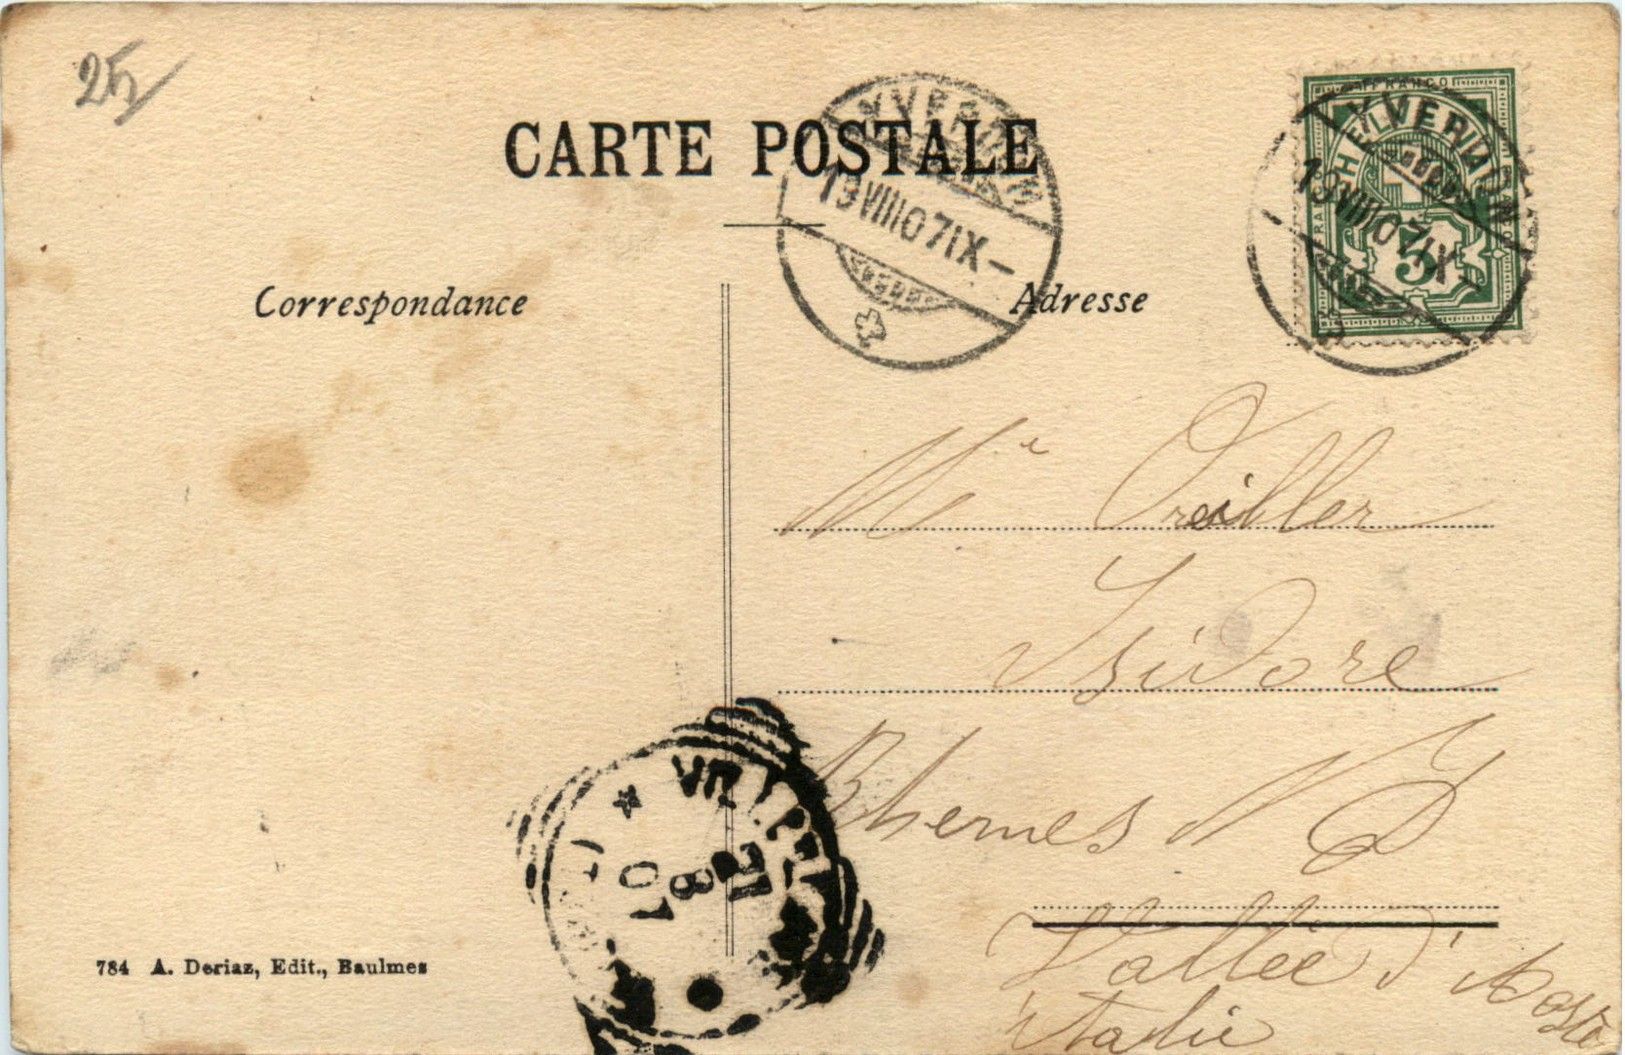 25
CARTE POSTALE
YVERDON
19 VIII 07 IX –
FRANCO
HELVETIA
5
YVERDON
19 VIII 07 IX
Correspondance
Adresse
Mr Oreiller
Isidore
Rhemes N D
Vallée d'Aoste
Italie
8
07
784 A. Deriaz, Edit., Baulmes